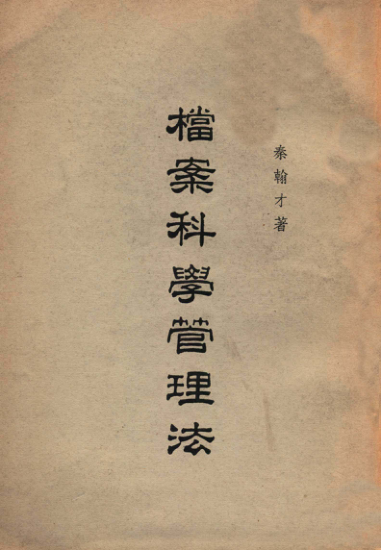 秦翰才著
檔案科學管理法